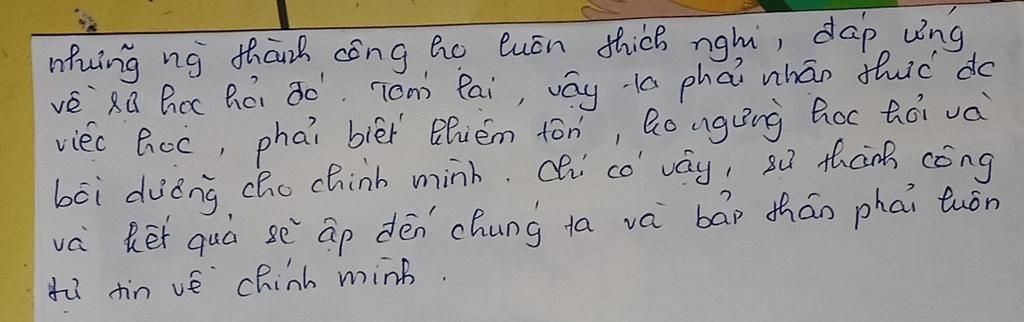 những ng thành công họ luôn thích nghi, đáp ứng
về sự học hỏi đó. Tóm lại, vậy ta phải nhận thức đc
việc học, phải biết khiêm tốn, ko ngừng học hỏi và
bồi dưỡng cho chính mình. Chỉ có vậy, sự thành công
và kết quả sẽ ập đến chúng ta và bản thân phải luôn
tự tin về chính mình.